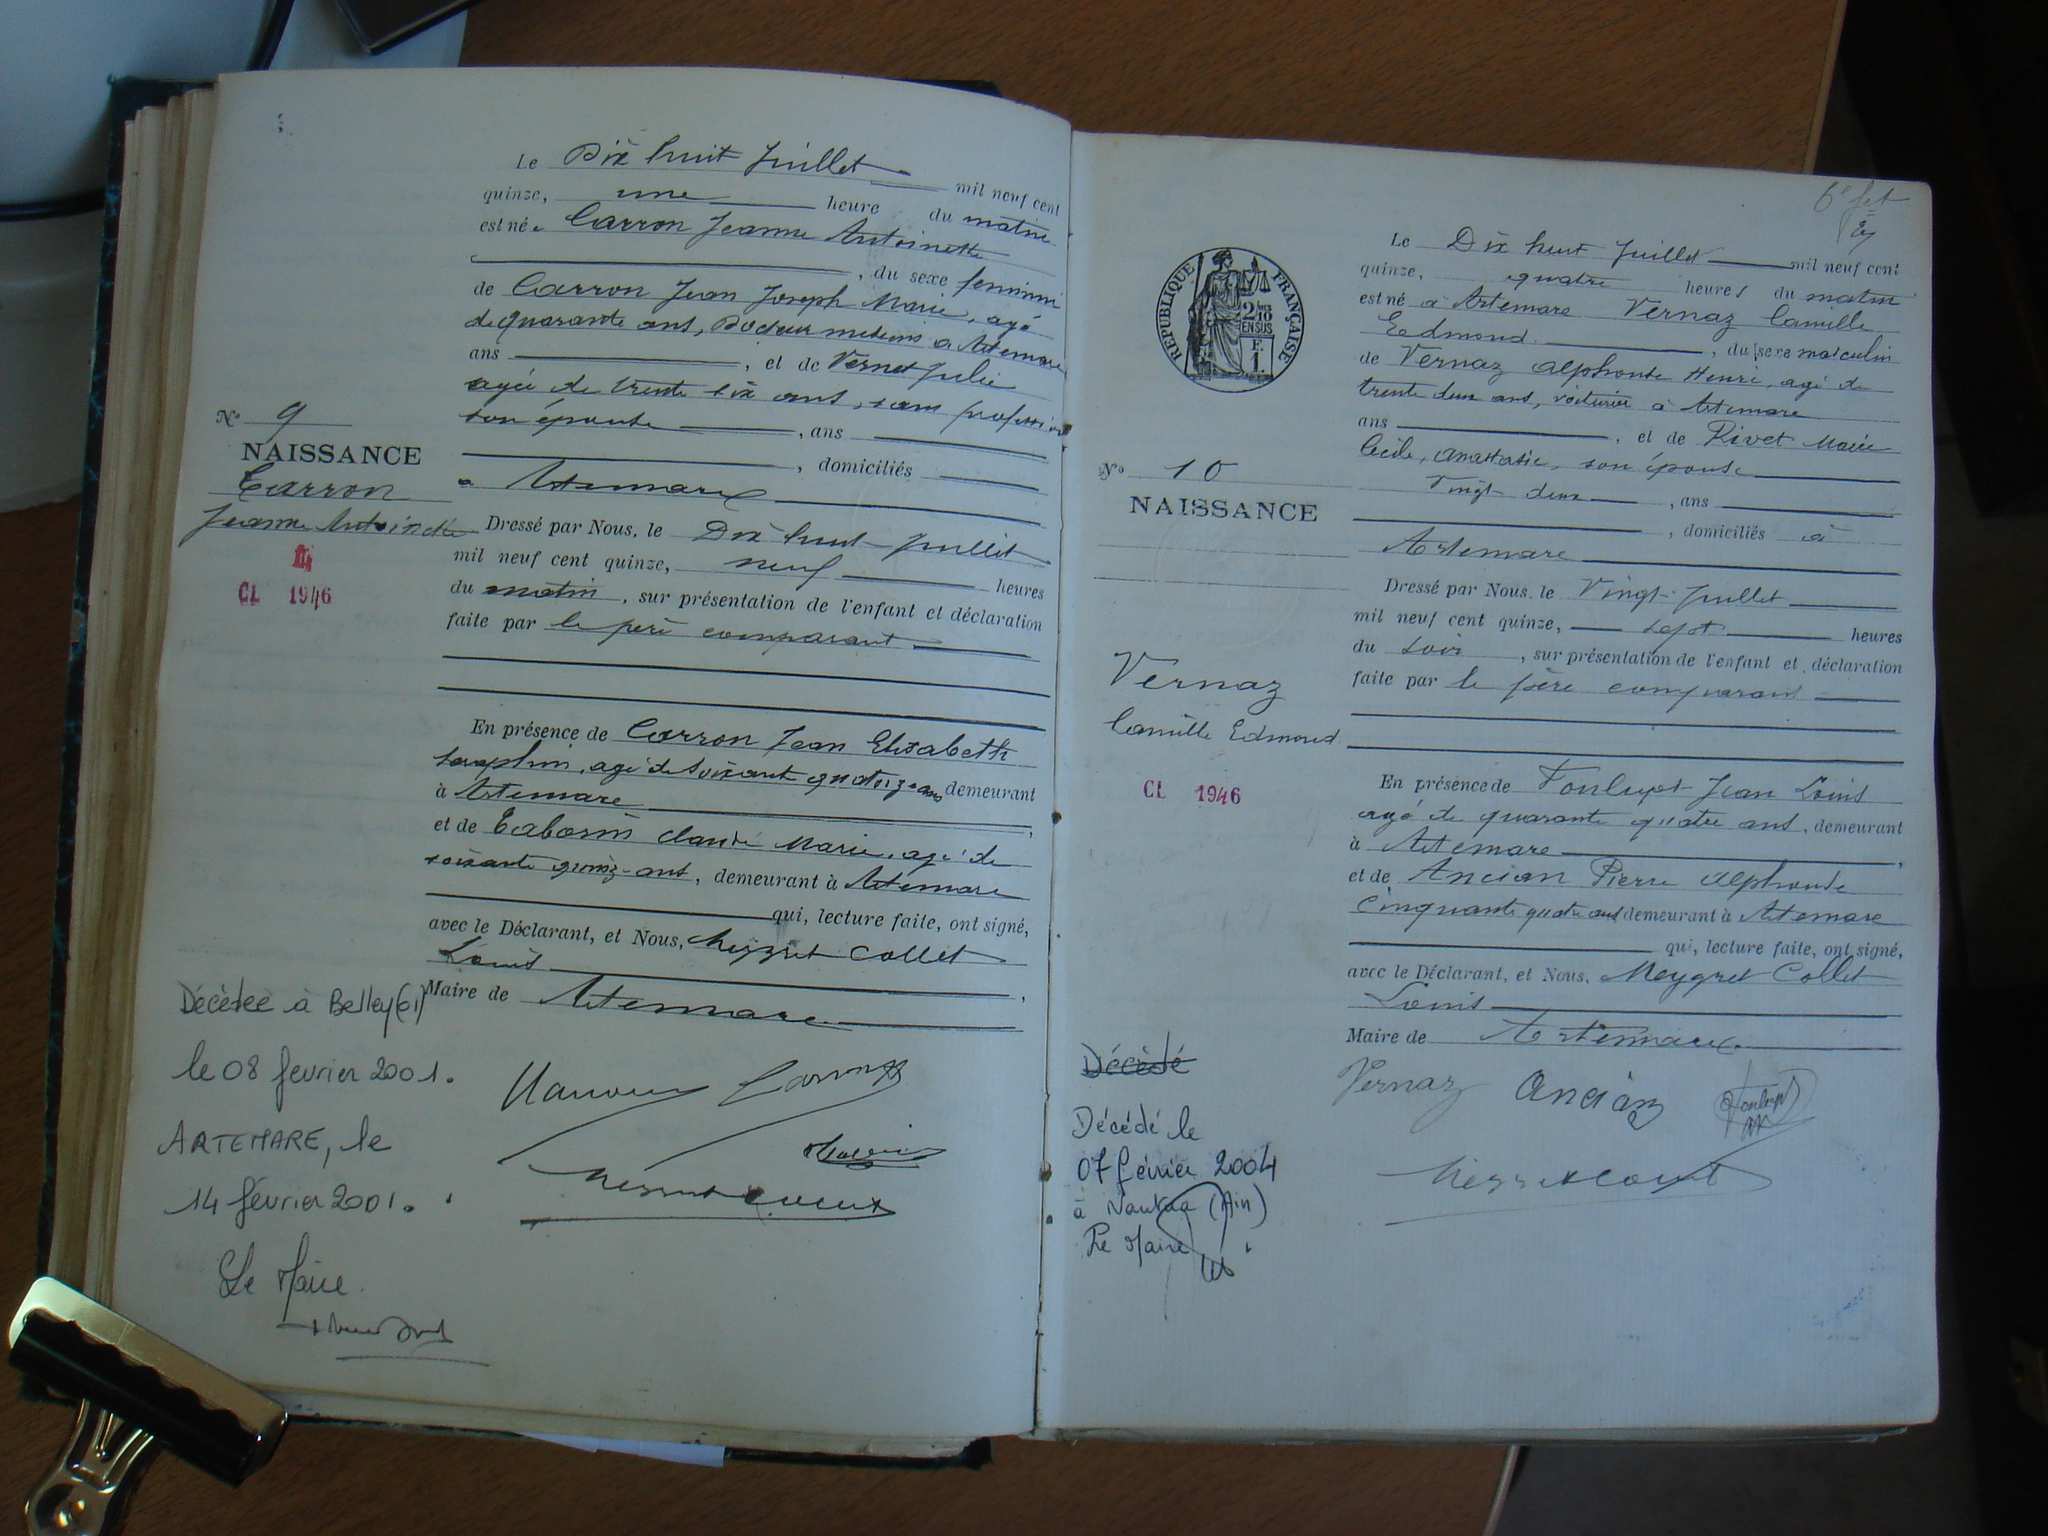 Le Dix huit Juillet mil neuf cent
quinze, une heure du matin
est née Carron Jeanne Antoinette
, du sexe féminin
de Carron Jean Joseph Marie, agé
de quarante ans, Docteur médecin à Artemare
ans , et de Vernet Julie
agée de trente six ans, sans profession
son épouse , ans
, domiciliés
à Artemare
Dressé par Nous, le Dix huit Juillet
mil neuf cent quinze, neuf heures
du matin, sur présentation de l'enfant et déclaration
faite par le père comparant
En présence de Carron Jean Elisabeth
Séraphin, agé de soixante quatorze ans demeurant
à Artemare ,
et de Taborin Claude Marie, agé de
soixante quinze ans, demeurant à Artemare
qui, lecture faite, ont signé,
avec le Déclarant, et Nous, Meygret Collet
Louis
Maire de Artemare ,
N° 9
NAISSANCE
Carron
Jeanne Antoinette
CL 1946
Décédée à Belley (01)
le 08 février 2001.
ARTEMARE, le
14 février 2001.
Le Maire.
6e fet
REPUBLIQUE FRANÇAISE
2/10
EN SUS
F.
1.
Le Dix huit Juillet mil neuf cent
quinze, quatre heures du matin
est né à Artemare Vernaz Camille
Edmond. , du sexe masculin
de Vernaz Alphonse Henri, agé de
trente deux ans, voiturier à Artemare
ans , et de Rivet Marie
Cécile, Anastasie, son épouse
Vingt deux , ans
, domiciliés à
Artemare
Dressé par Nous, le Vingt Juillet
mil neuf cent quinze, sept heures
du soir , sur présentation de l'enfant et déclaration
faite par le père comparant
En présence de Foulupt Jean Louis
agé de quarante quatre ans, demeurant
à Artemare ,
et de Ancian Pierre Alphonse
Cinquante quatre ans demeurant à Artemare
qui, lecture faite, ont signé,
avec le Déclarant, et Nous, Meygret Collet
Louis
Maire de Artemare.
Vernaz Ancian
N° 10
NAISSANCE
Vernaz
Camille Edmond
CL 1946
Décédé
Décédé le
07 février 2004
à Nantua (Ain)
Le Maire